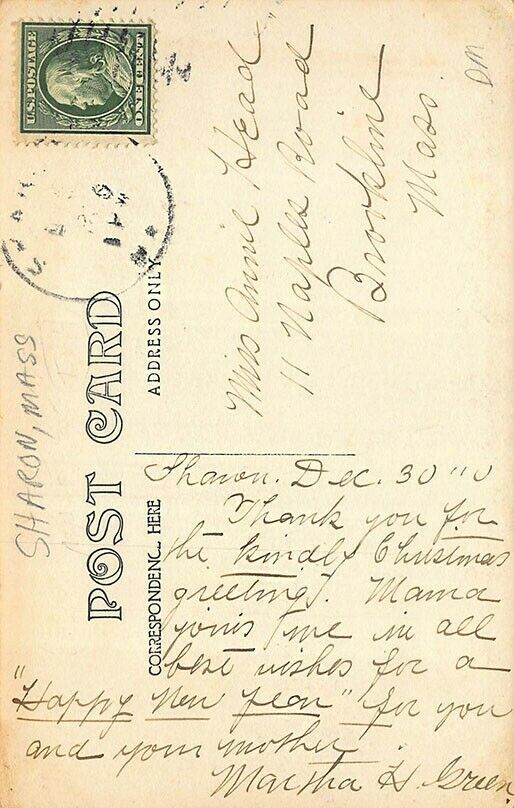 U.S. POSTAGE
ONE CENT
POST CARD
ADDRESS ONLY
CORRESPONDENC. HERE
SHARON, MASS
DM
Miss Annie Head
11 Naples Road
Brookline
Mass.
Sharon. Dec. 30 "0
Thank you for
the kindly Christmas
greeting. Mama
joins me in all
best wishes for a
"Happy New Year" for you
and your mother.
Martha H. Green